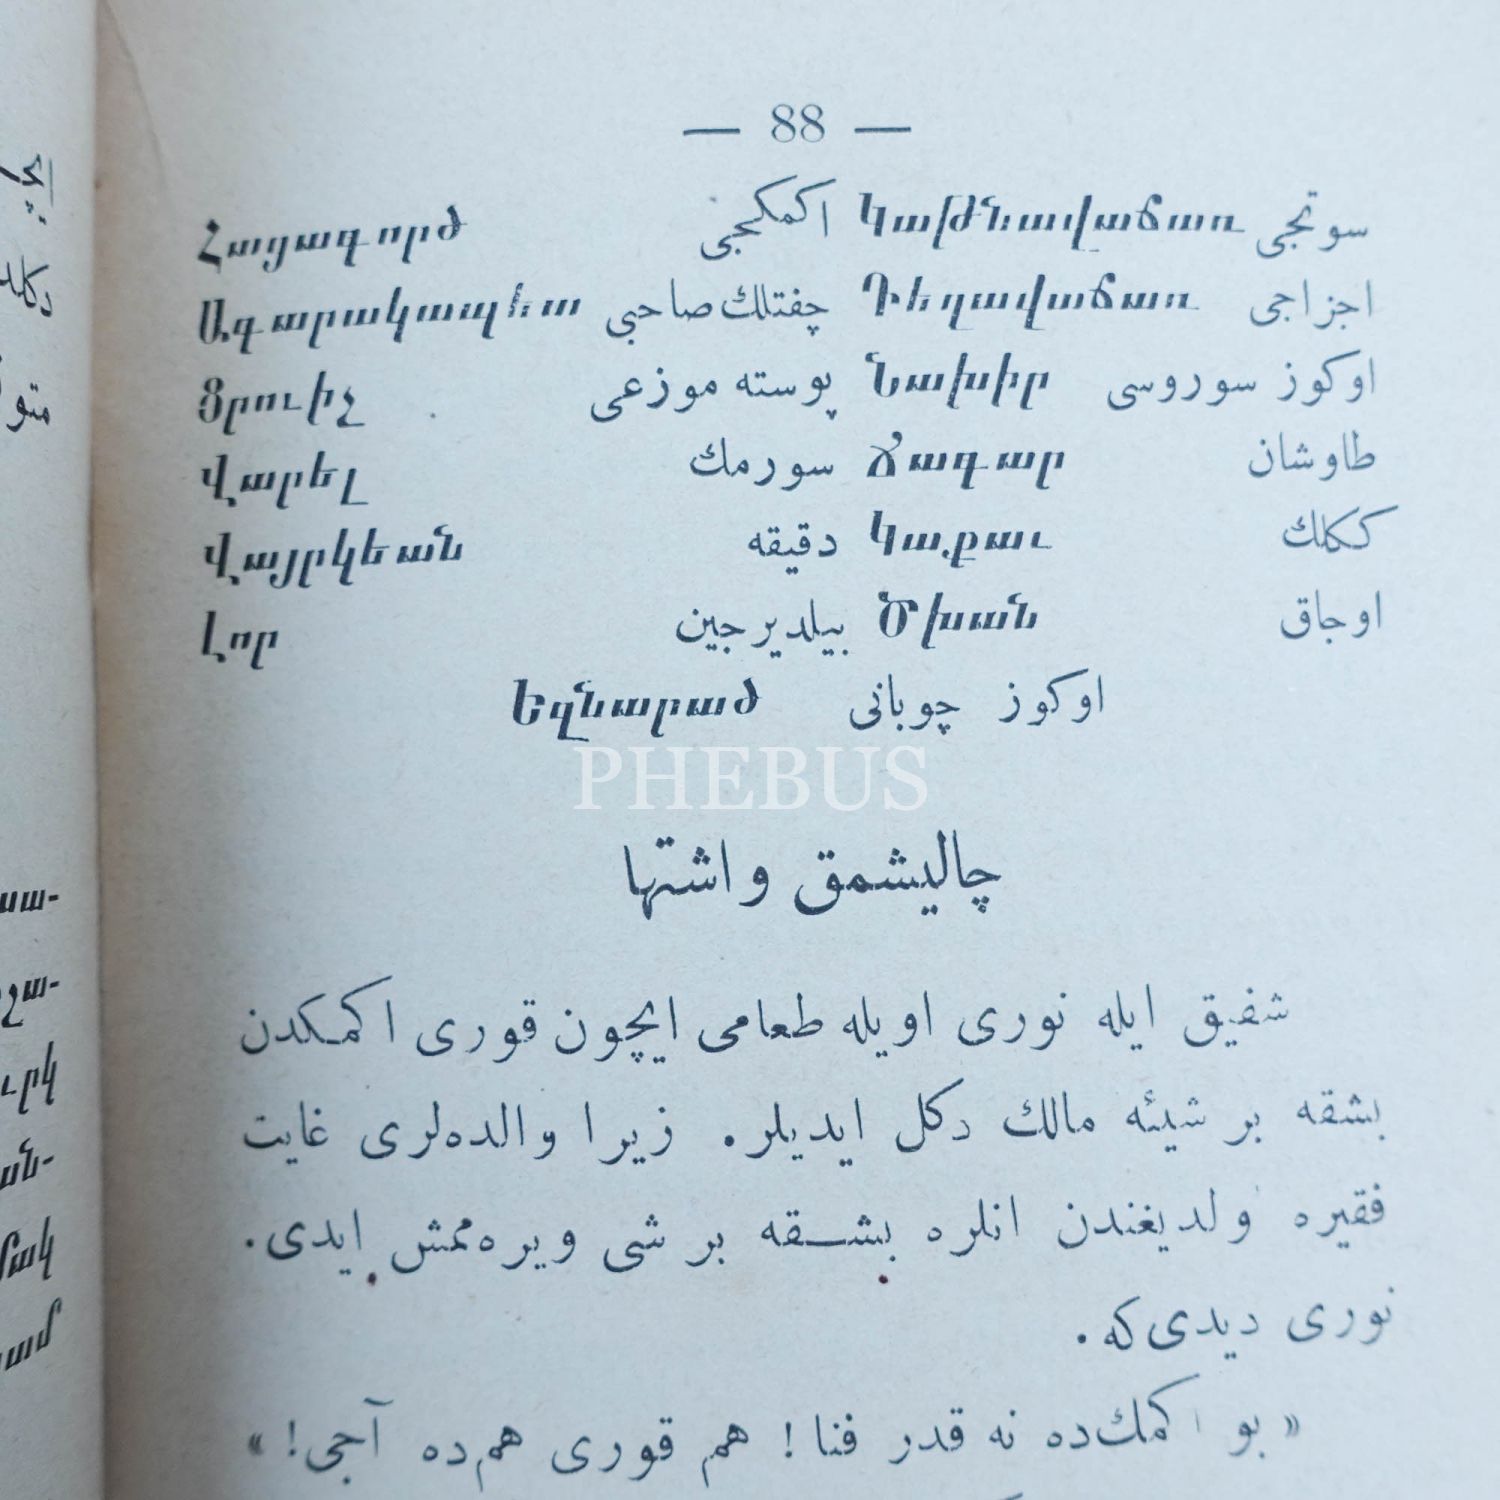 — 88 —
سوتجی Կաթնավաճառ اكمكجی Հացագործ
اجزاجی Դեղավաճառ چفتلك صاحبی Ագարակապետ
اوكوز سوروسی Նախիր پوسته موزعی Ցրուիչ
طاوشان Ճագար سورمك Վարել
ككلك Կաքաւ دقیقه Վայրկեան
اوجاق Ծխան بیلدیرجین Լոր
اوكوز چوبانی Եզնարած
PHEBUS
چالیشمق و اشتها
شفیق ایله نوری اویله طعامی ایچون قوری اكمكدن
بشقه بر شیئه مالك دكل ایدیلر. زیرا والده‌لری غایت
فقیره ولدیغندن انلره بشقه بر شی ویره‌ممش ایدی.
نوری دیدی كه.
« بو اكمك‌ده نه قدر فنا! هم قوری هم‌ده آجی! »